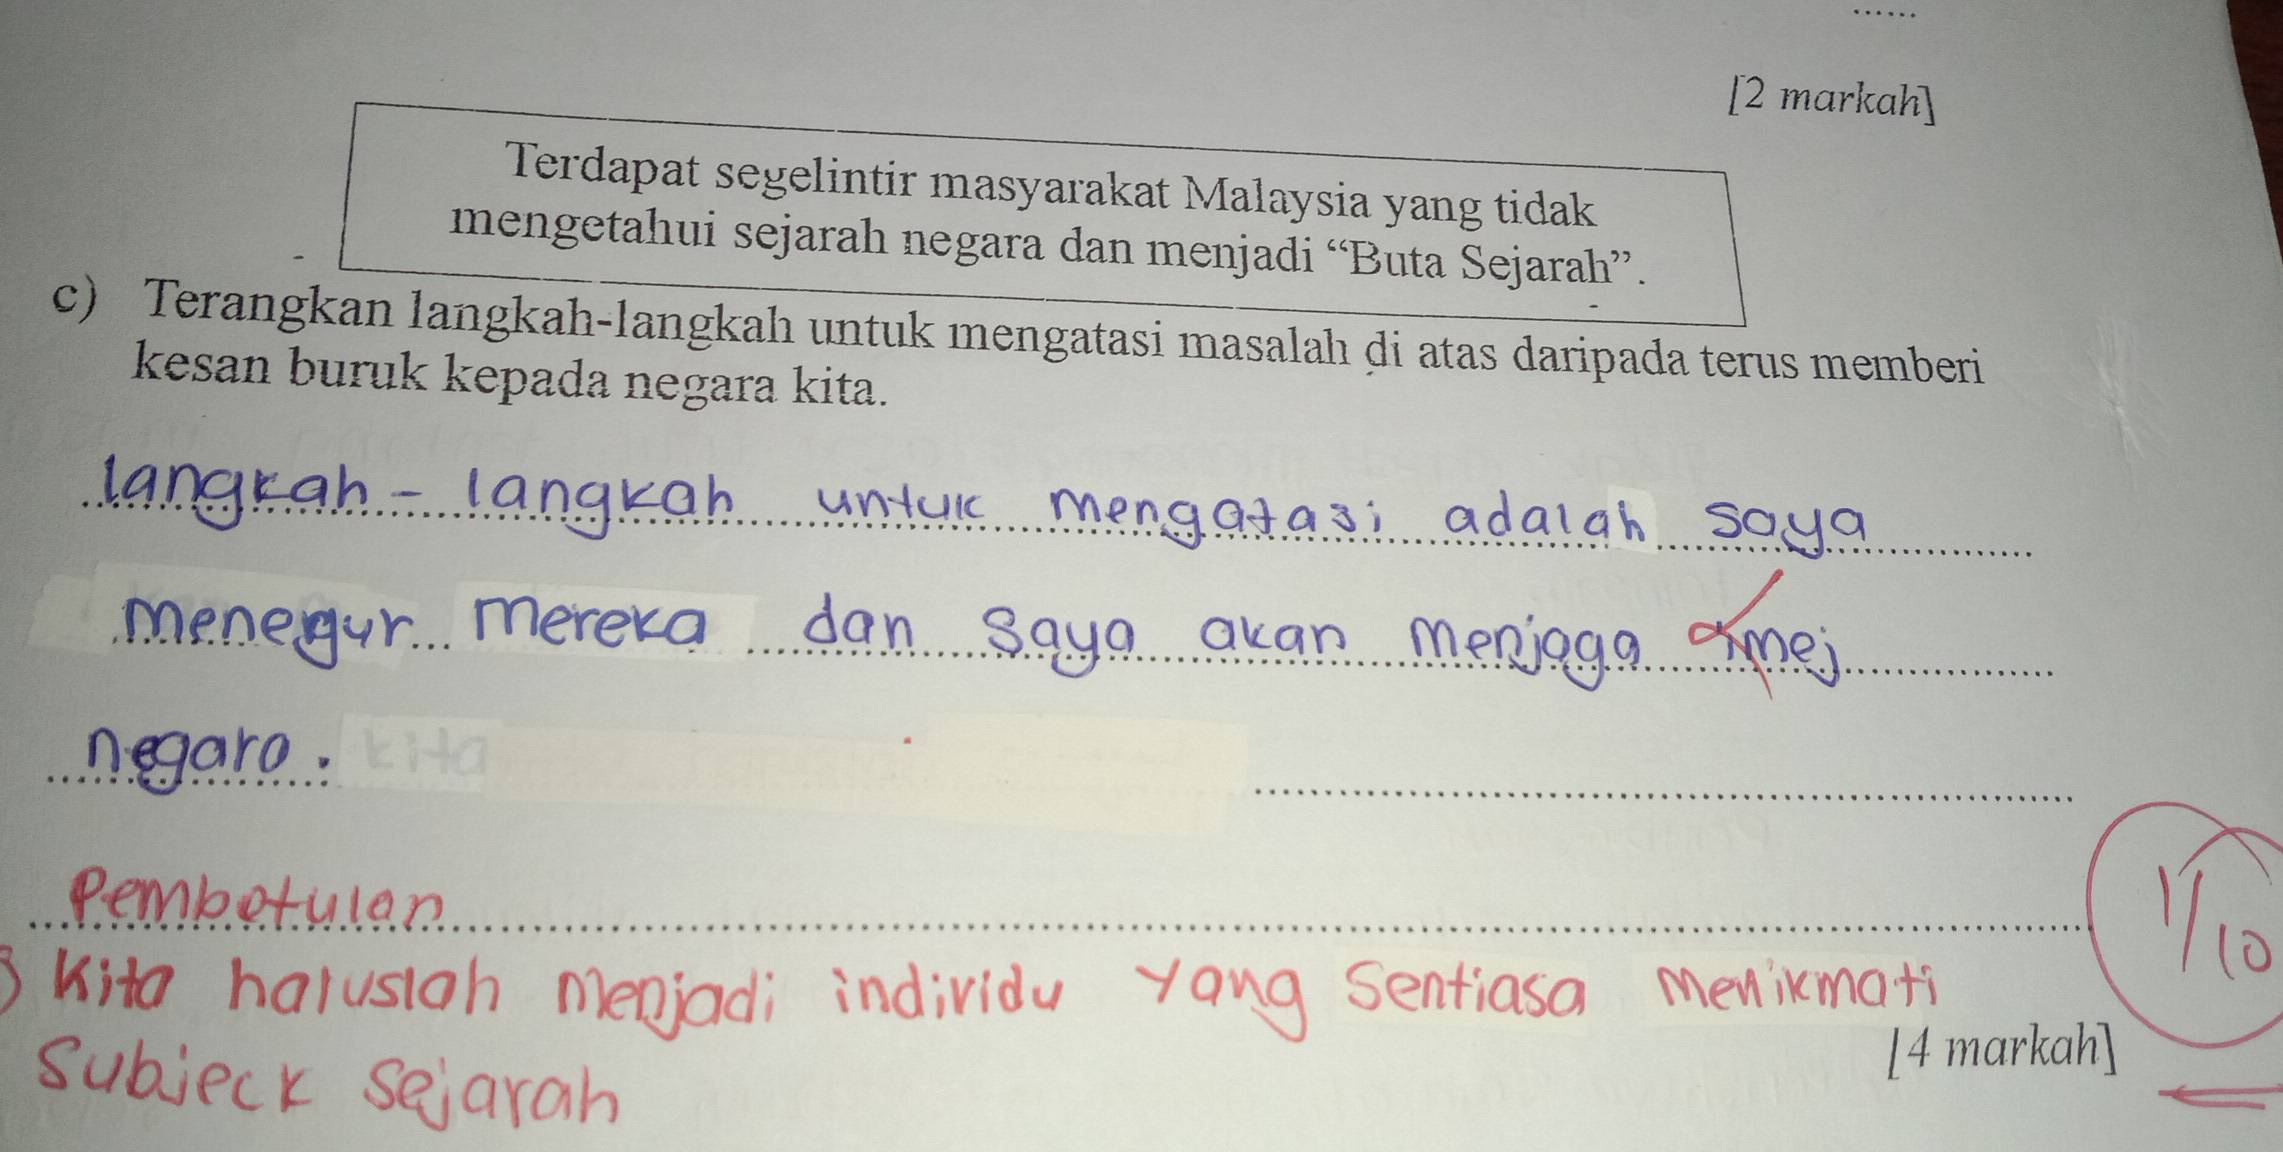 [2 markah]
Terdapat segelintir masyarakat Malaysia yang tidak
mengetahui sejarah negara dan menjadi “Buta Sejarah”.
c) Terangkan langkah-langkah untuk mengatasi masalah di atas daripada terus memberi
kesan buruk kepada negara kita.
langkah - langkah untuk mengatasi adalah saya
menegur mereka dan saya akan menjaga imej
negara. kita
Pembetulan
Kita haruslah menjadi individu yang sentiasa menikmati
1/10
[4 markah]
Subjeck sejarah